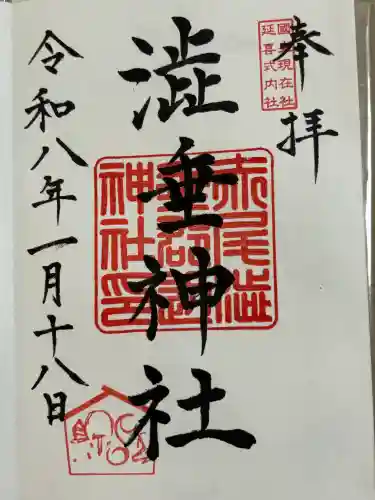 奉拝
國史現在社
延喜式内社
澁垂神社
赤尾澁
垂郡邊
神社印
令和八年一月十八日